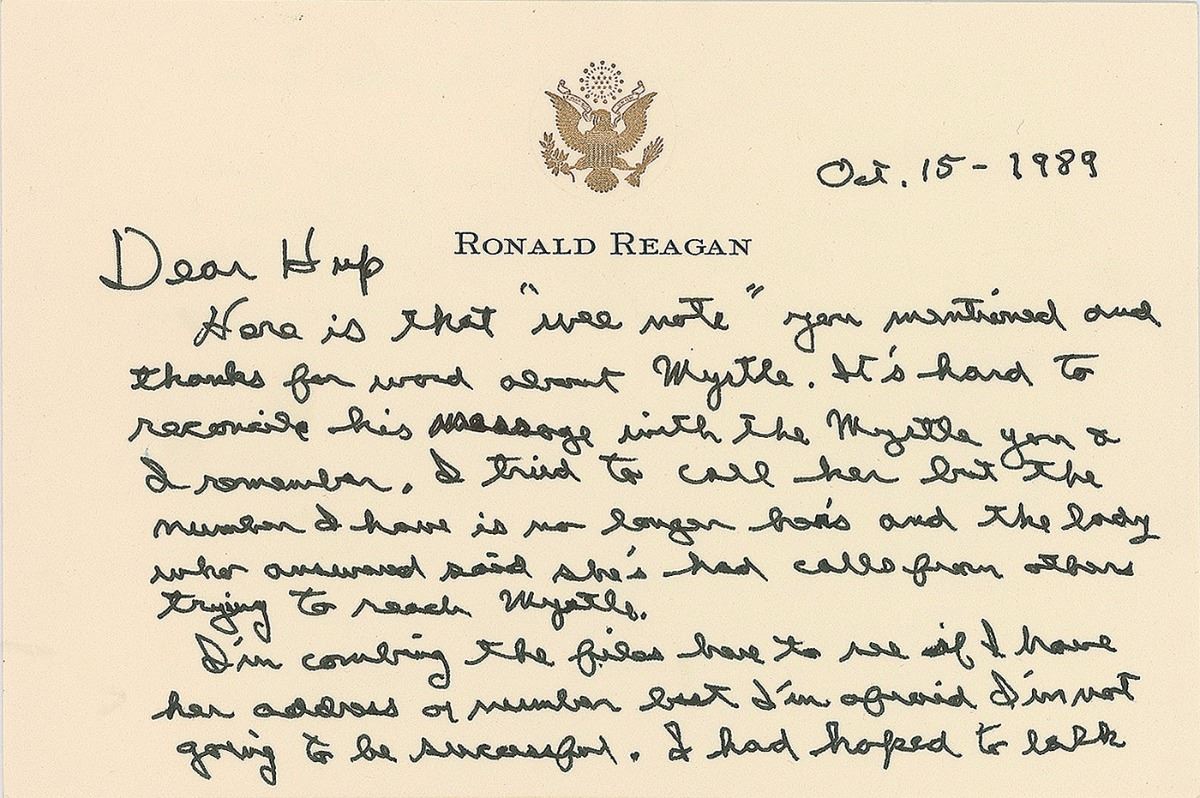 Oct. 15 - 1989
RONALD REAGAN
Dear Hup
Here is that "wee note" you mentioned and
thanks for word about Myrtle. It's hard to
reconcile his message with the Myrtle you &
I remember. I tried to call her but the
number I have is no longer her's and the lady
who answered said she's had calls from others
trying to reach Myrtle.
I'm combing the files here to see if I have
her address or number but I'm afraid I'm not
going to be successful. I had hoped to talk